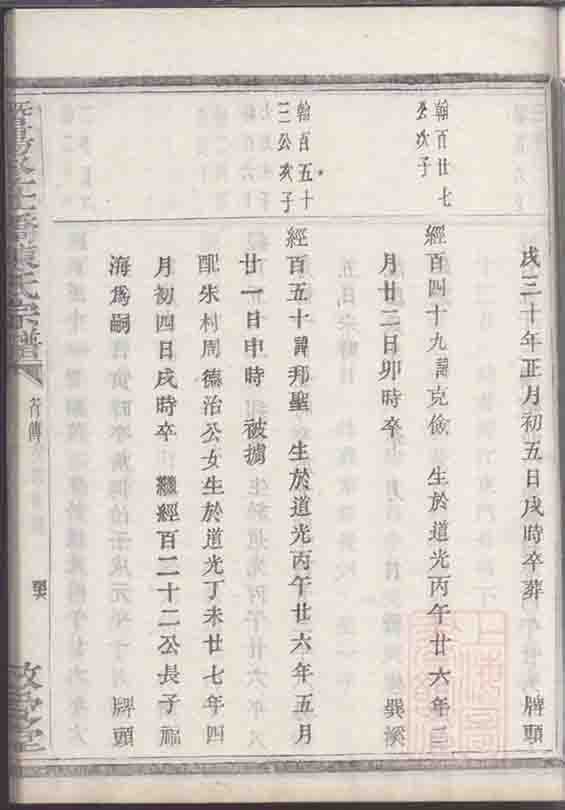 戌三十年正月初五日戌時卒葬 牌頭
翰百廿七
公次子
經百四十九諱克儉 生於道光丙午廿六年三
月廿二日卯時卒 巽溪
翰百五十
三公次子
經百五十諱邦聖 生於道光丙午廿六年五月
廿一日申時 被擄
配朱村周德治公女生於道光丁未廿七年四
月初四日戌時卒 繼經百二十二公長子
海爲嗣 牌頭
陳氏宗譜